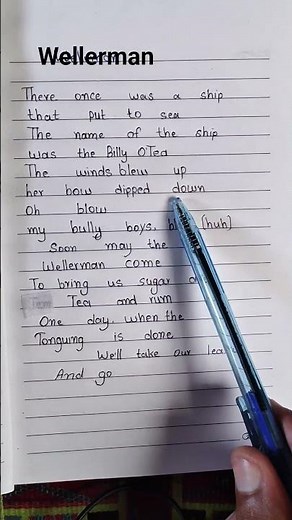 Wellerman
There once was a ship
that put to sea
The name of the ship
was the Billy O'Tea
The winds blew up
her bow dipped down
Oh blow
my bully boys, (huh)
Soon may the
Wellerman come
To bring us sugar
Tea and rum
One day, when the
Tonguing is done
We'll take our
And go